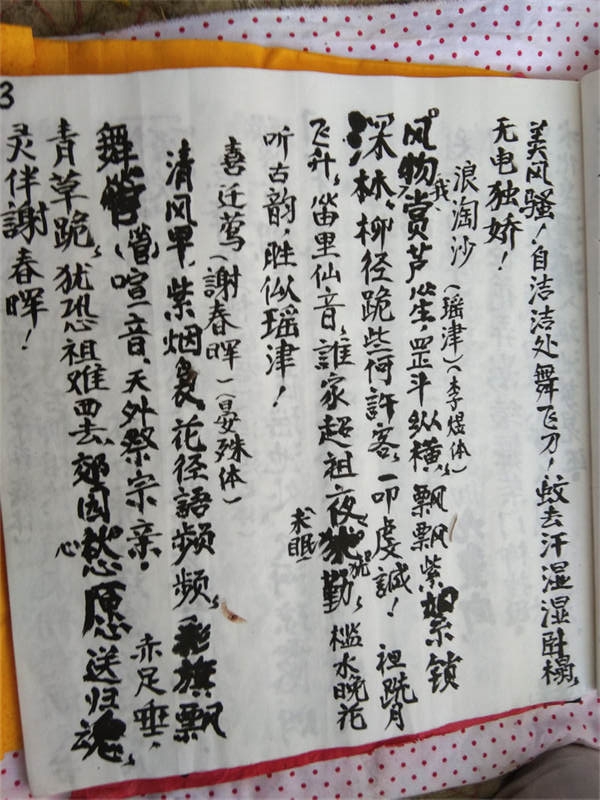 3
美风骚！自洁洁处舞飞刀，蚊去汗湿湿卧榻，
无电独娇！
浪淘沙（瑶津）（李煜体）
风物我赏芦笙，罡斗纵横，飘飘紫絮锁
深林，柳径跪些何許客，一叩虔誠！袒跣月
飞升，笛里仙音，誰家超祖夜犹勤，槛水晚花
求眠
听古韵，胜似瑶津！
喜迁莺（謝春晖）（晏殊体）
清风早，紫烟袅，花径語頻频，彩旗飘
舞管（管）喧音，天外祭宗亲。赤足垂，
青草跪，犹恐祖难西去，郊园愁愿送归魂，
心
灵伴謝春晖！